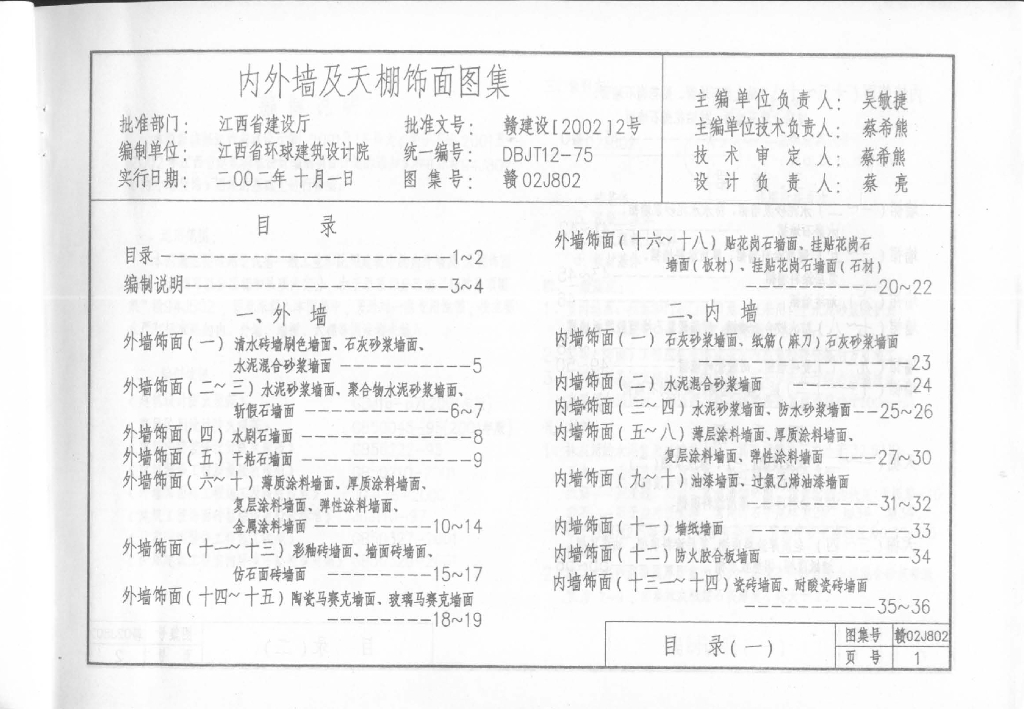 内外墙及天棚饰面图集
批准部门： 江西省建设厅 批准文号： 赣建设[2002]2号
编制单位： 江西省环球建筑设计院 统一编号： DBJT12-75
实行日期： 二00二年十月一日 图集号： 赣02J802
主编单位负责人： 吴敏捷
主编单位技术负责人： 蔡希熊
技术审定人： 蔡希熊
设计负责人： 蔡亮
目 录
目录------------------1~2
编制说明------------------3~4
一、外 墙
外墙饰面(一) 清水砖墙刷色墙面、石灰砂浆墙面、
水泥混合砂浆墙面 ----------5
外墙饰面(二~三) 水泥砂浆墙面、聚合物水泥砂浆墙面、
斩假石墙面 ----------6~7
外墙饰面(四) 水刷石墙面 ------------8
外墙饰面(五) 干粘石墙面 ------------9
外墙饰面(六~十) 薄质涂料墙面、厚质涂料墙面、
复层涂料墙面、弹性涂料墙面、
金属涂料墙面 ---------10~14
外墙饰面(十一~十三) 彩釉砖墙面、墙面砖墙面、
仿石面砖墙面 --------15~17
外墙饰面(十四~十五) 陶瓷马赛克墙面、玻璃马赛克墙面
--------18~19
外墙饰面(十六~十八) 贴花岗石墙面、挂贴花岗石
墙面(板材)、挂贴花岗石墙面(石材)
----------20~22
二、内 墙
内墙饰面(一) 石灰砂浆墙面、纸筋(麻刀)石灰砂浆墙面
----------------23
内墙饰面(二) 水泥混合砂浆墙面 ---------24
内墙饰面(三~四) 水泥砂浆墙面、防水砂浆墙面--25~26
内墙饰面(五~八) 薄层涂料墙面、厚质涂料墙面、
复层涂料墙面、弹性涂料墙面 ---27~30
内墙饰面(九~十) 油漆墙面、过氯乙烯油漆墙面
----------31~32
内墙饰面(十一) 墙纸墙面 ------------33
内墙饰面(十二) 防火胶合板墙面 ----------34
内墙饰面(十三~十四) 瓷砖墙面、耐酸瓷砖墙面
----------35~36
目 录(一)
图集号 赣02J802
页 号 1